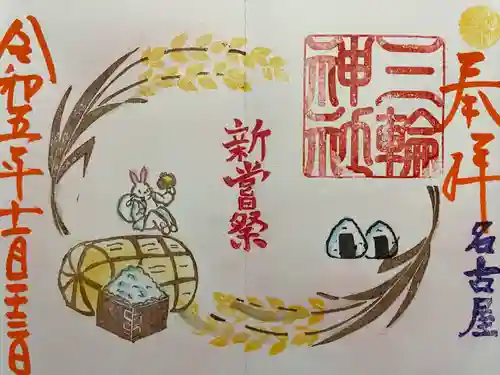 奉拝
名古屋
三輪
神社
新嘗祭
令和五年十一月二十三日